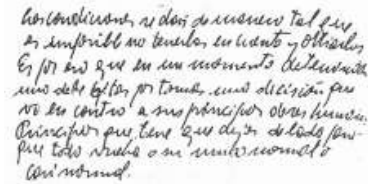 Las condiciones se dan de manera tal que
es imposible no tenerlas en cuenta y obviarlas
Es por eso que en un momento determinado
uno debe optar por tomar una decisión que
va en contra a sus principios
Principios que tiene que dejar de lado para
que todo vuelva a su normal o
casi normal.